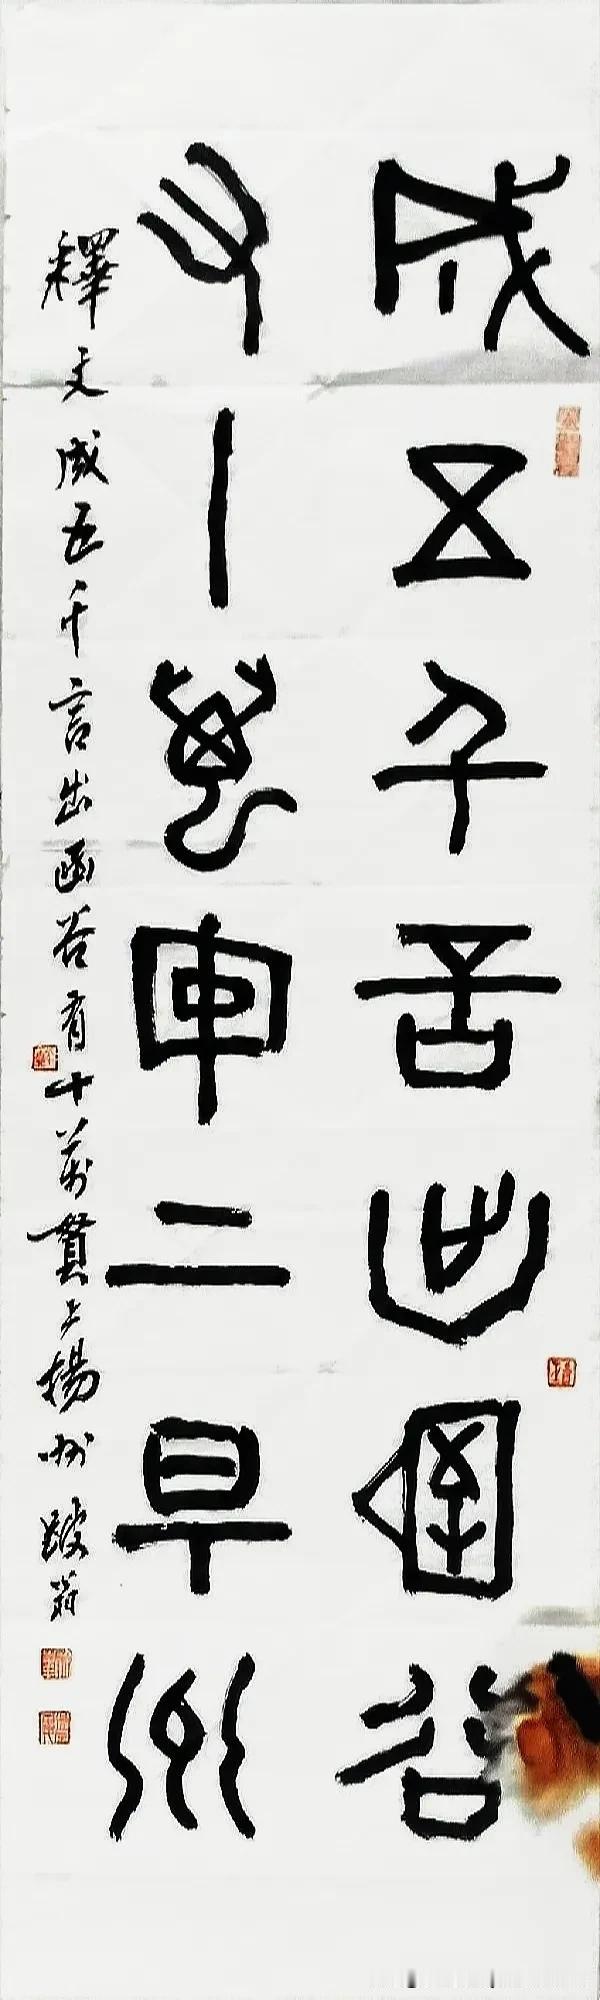 成五千言出函谷
有十萬貫上揚州
釋文成五千言出函谷有十萬貫上揚州 跛翁